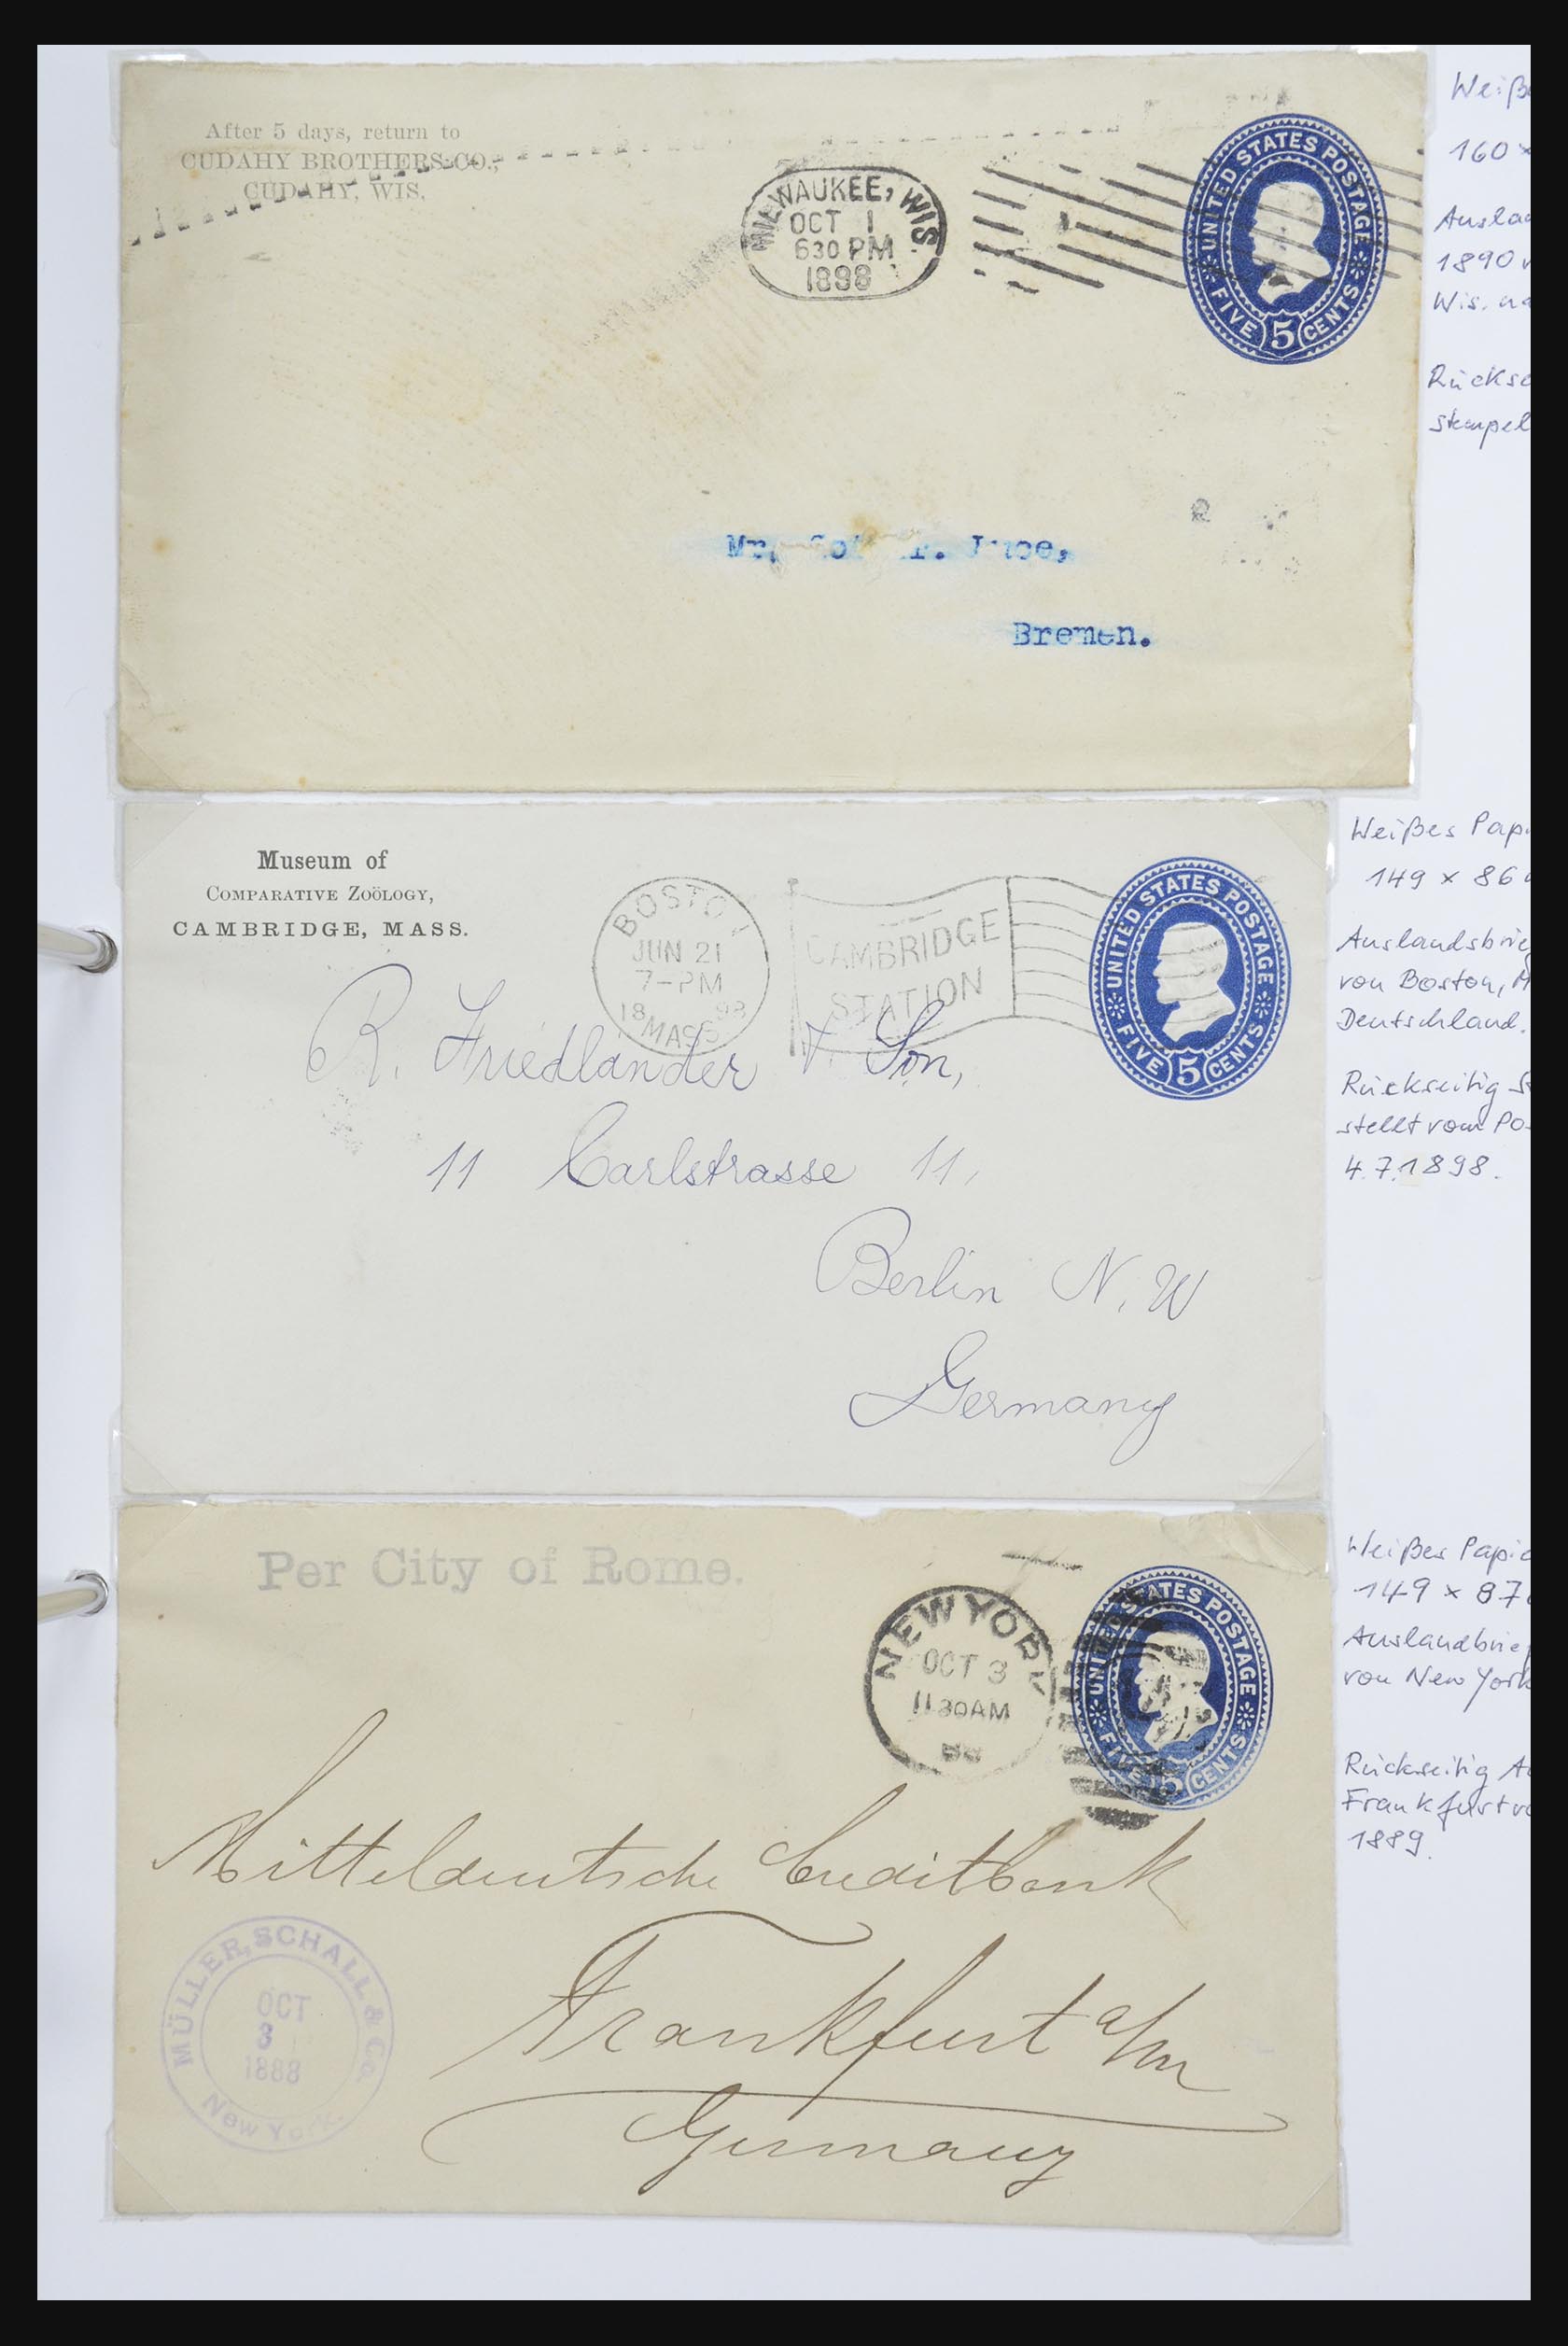 After 5 days, return to
CUDAHY BROTHERS CO.,
CUDAHY, WIS.
MILWAUKEE, WIS.
OCT 1
630 PM
1898
UNITED STATES POSTAGE
FIVE 5 CENTS
Mr,
Bremen.
160 ×
1890
Wis.
Museum of
COMPARATIVE ZOÖLOGY,
CAMBRIDGE, MASS.
BOSTON
JUN 21
7-PM
1898
MASS
CAMBRIDGE
STATION
UNITED STATES POSTAGE
FIVE 5 CENTS
R. Friedlander & Son,
11 Carlstrasse 11,
Berlin N. W
Germany
Weißes
149 × 86
von Boston,
Deutschland.
Rückseitig
stellt vom
4.7.1898.
Per City of Rome.
NEW YORK
OCT 3
11 30AM
88
UNITED STATES POSTAGE
FIVE 5 CENTS
Mitteldeutsche Creditbank
Frankfurt a/m
Germany
MÜLLER, SCHALL & Co.
OCT
3
1888
New York.
Weißes
149 × 87
von New York
Rückseitig
Frankfurt
1889.